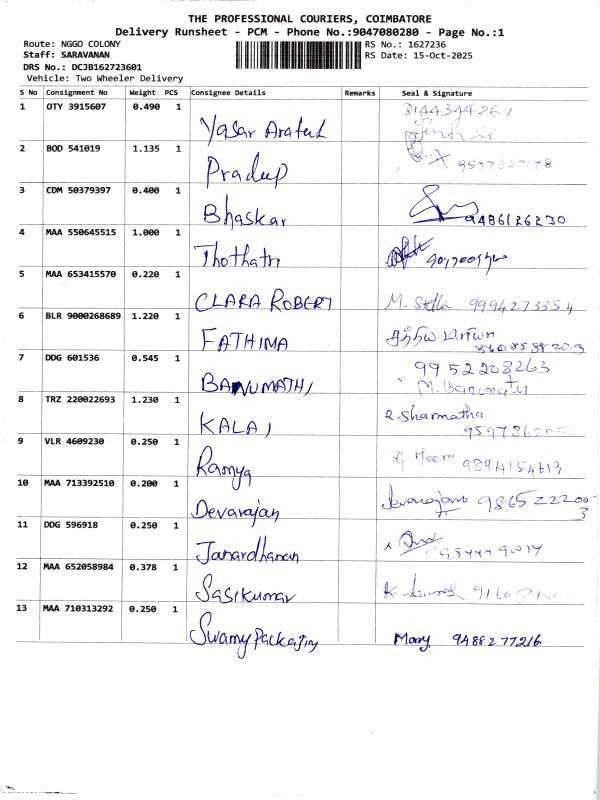 THE PROFESSIONAL COURIERS, COIMBATORE
Delivery Runsheet - PCM - Phone No.:9047080280 - Page No.:1
Route: NGGO COLONY
RS No.: 1627236
Staff: SARAVANAN
RS Date: 15-Oct-2025
DRS No.: DCJB162723601
Vehicle: Two Wheeler Delivery
S No Consignment No Weight PCS Consignee Details Remarks Seal & Signature
1 OTY 3915607 0.490 1
Yasar
2 BOD 541019 1.135 1
Pradeep
3 CDM 50379397 0.400 1
Bhaskar 9486126230
4 MAA 550645515 1.000 1
Thothatri
5 MAA 653415570 0.220 1
CLARA ROBERT M. Stella 9994273354
6 BLR 9000268689 1.220 1
FATHIMA
8608588223
7 DDG 601536 0.545 1
9952208263
BANUMATHI M. Banumathi
8 TRZ 220022693 1.230 1
R. Sharmatha
KALAI
9 VLR 4609230 0.250 1
Ramya G. Meena 9894154613
10 MAA 713392510 0.200 1
Devarajan 98652220073
11 DDG 596918 0.250 1
Janardhanan
12 MAA 652058984 0.378 1
Sasikumar
13 MAA 710313292 0.250 1
Swamy Packaging Mary 9488277216